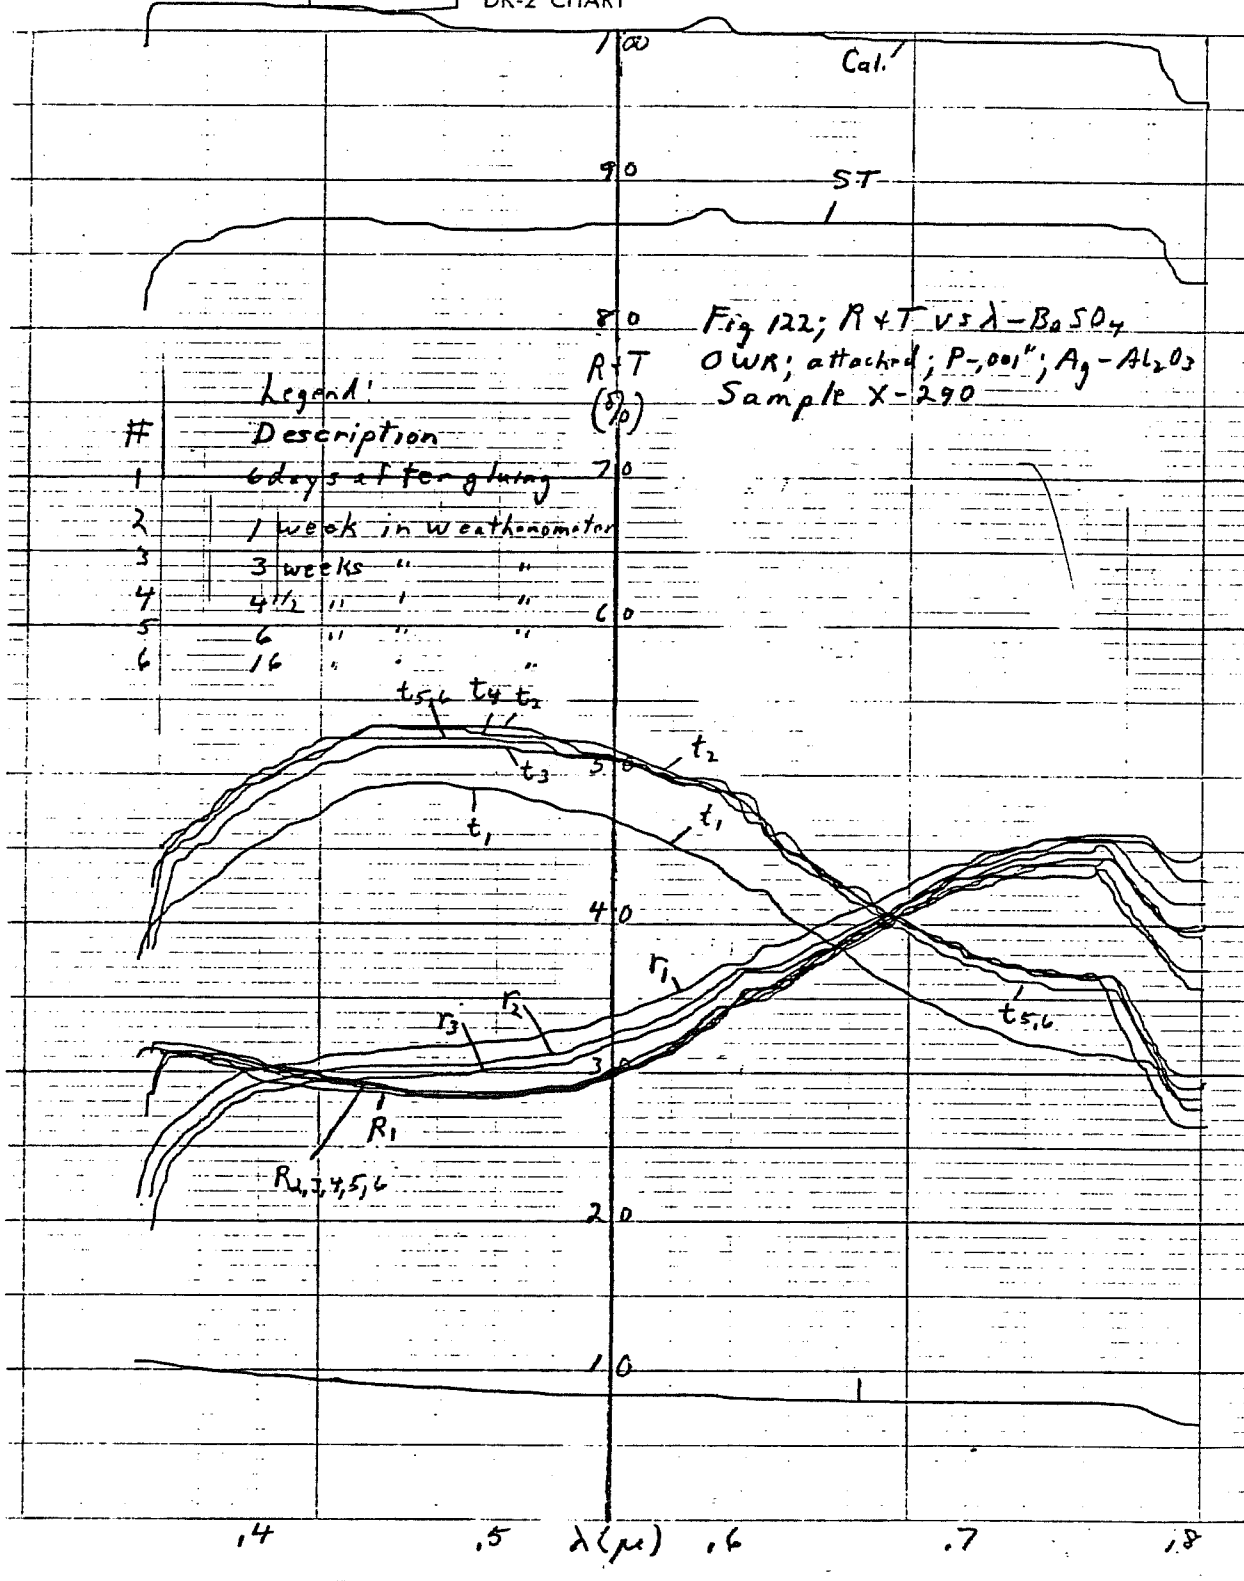 DR-2 CHART
100
Cal.
90
ST
80
Fig 122; R+T vs λ-BaSO4
R+T
OWR; attached; P-,001"; Ag-Al2O3
(%)
Sample X-290
Legend:
# Description
70
1 6 days after gluing
2 1 week in weatherometer
3 3 weeks " "
4 4 1/2 " " "
60
5 6 " " "
6 16 " " "
t5,6 t4 t2
t2
50
t3
t1 t1
40
r1
r2
r3
t5,6
30
R1
R2,3,4,5,6
20
10
.4 .5 λ(μ) .6 .7 .8